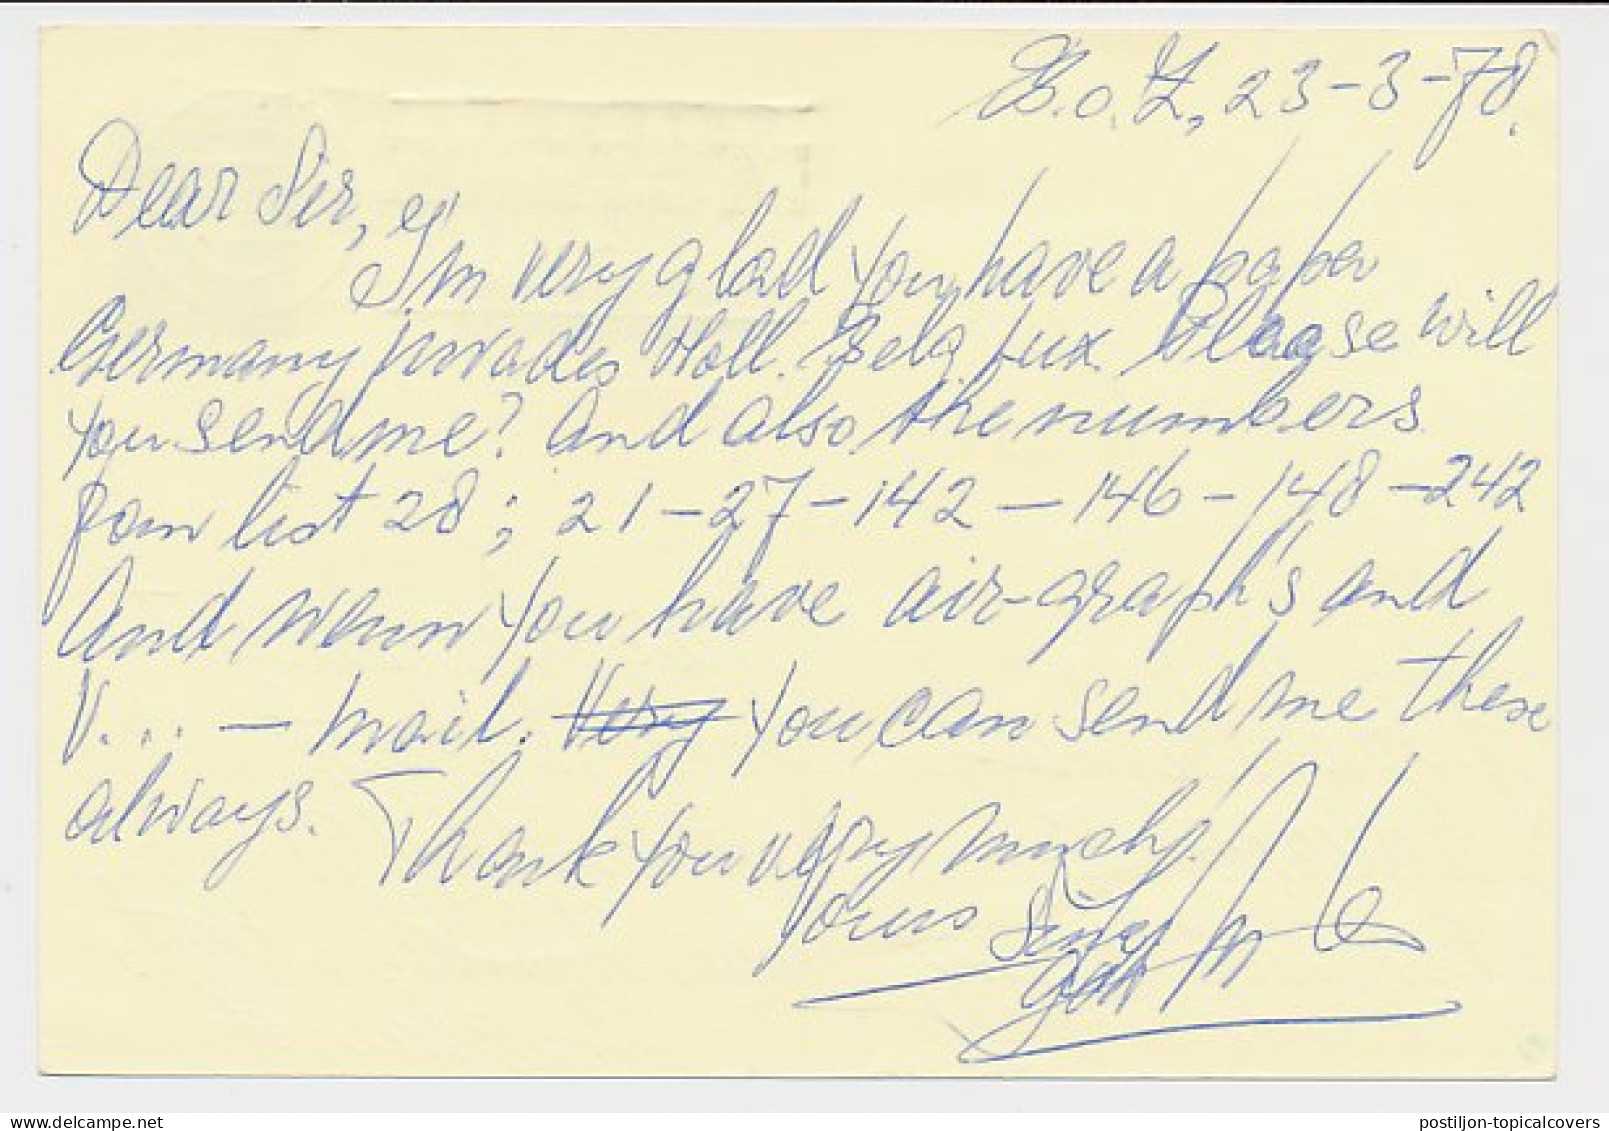 B.o.Z, 23-3-78.
Dear Sir,
I'm very glad you have a paper
Germany invades Holl. Belg. Lux. Please will
you send me? And also the numbers
from list 28; 21-27-142-146-148-242
And wenn you have air-graph's and
V... - mail. Very You can send me these
always. Thank you very much!
Yours
postiljon-topicalcovers